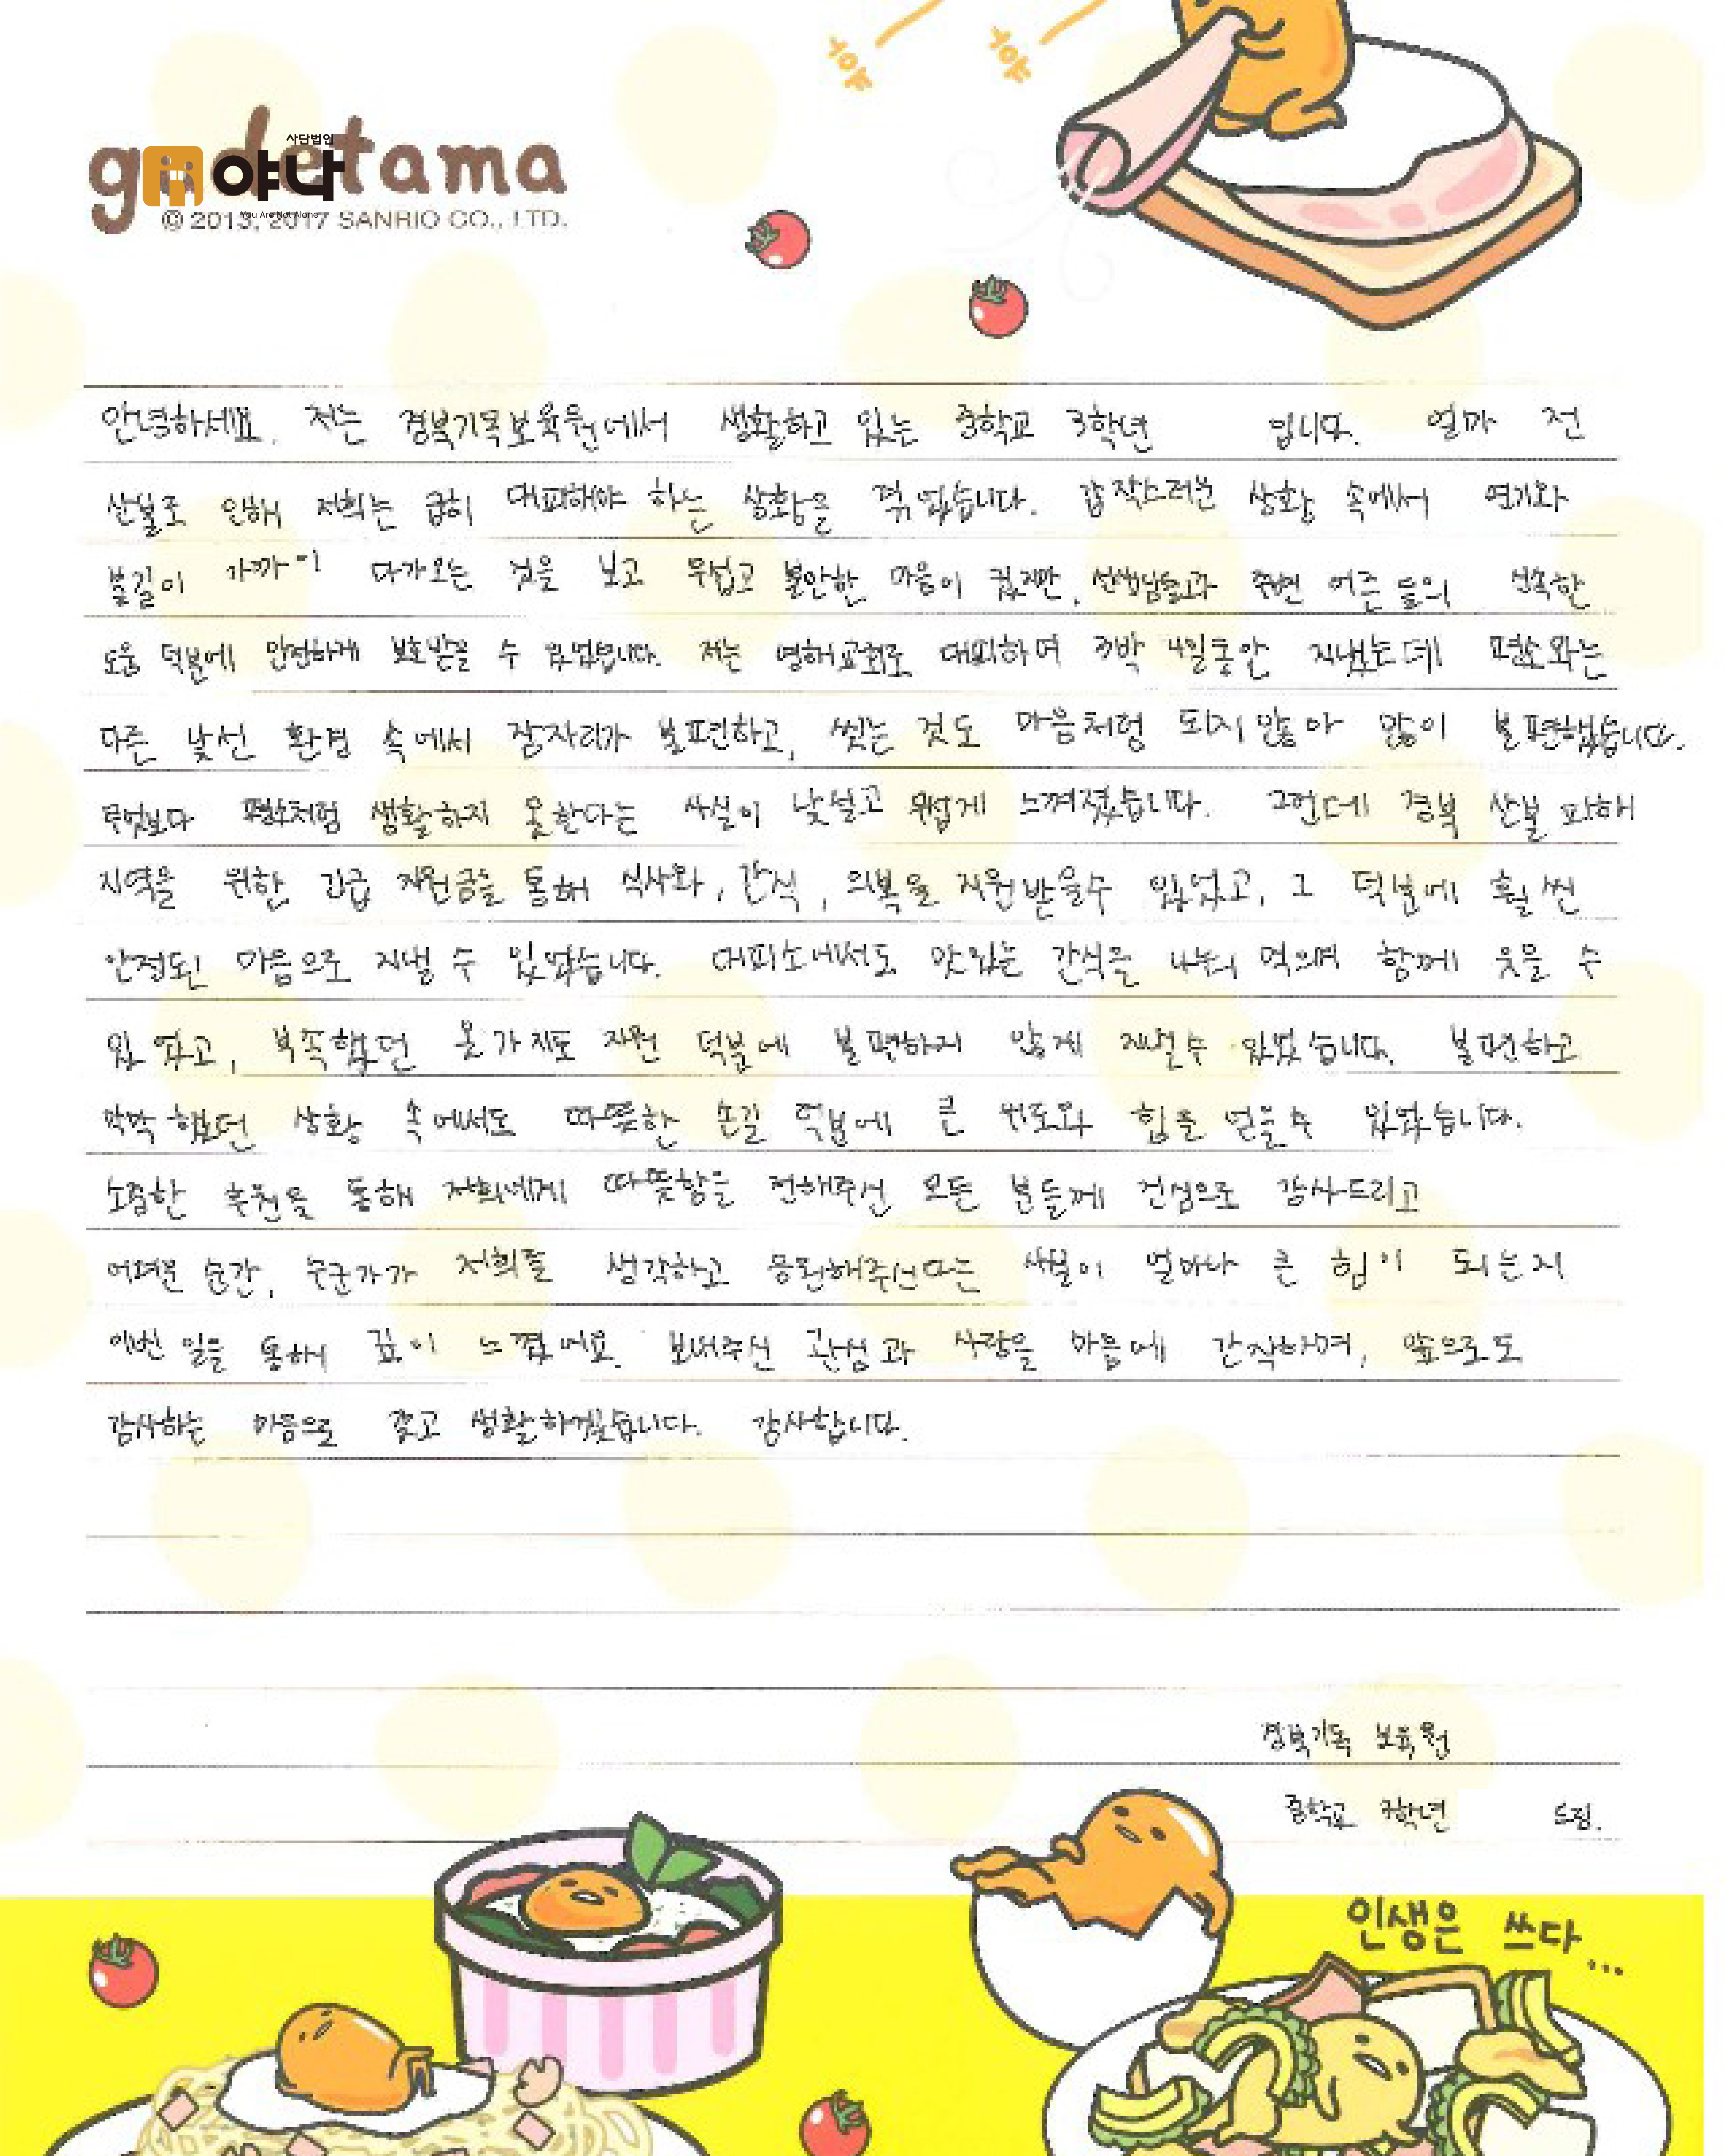 야 야
gudetama
사단법인
야나
You Are Not Alone
© 2013, 2017 SANRIO CO., LTD.
안녕하세요. 저는 경북기독보육원에서 생활하고 있는 중학교 3학년 입니다. 얼마 전
산불로 인해 저희는 급히 대피해야 하는 상황을 겪었습니다. 갑작스러운 상황 속에서 연기와
불길이 가까이 다가오는 것을 보고 무섭고 불안한 마음이 컸지만, 선생님들과 주변 어른들의 신속한
도움 덕분에 안전하게 보호받을 수 있었습니다. 저는 영해교회로 대피하며 3박 4일동안 지냈는데 평소와는
다른 낯선 환경 속에서 잠자리가 불편하고, 씻는 것도 마음처럼 되지 않아 많이 불편했습니다.
무엇보다 평소처럼 생활하지 못한다는 사실이 낯설고 무섭게 느껴졌습니다. 그런데 경북 산불 피해
지역을 위한 긴급 지원금을 통해 식사와, 간식, 의복을 지원받을수 있었고, 그 덕분에 훨씬
안정된 마음으로 지낼 수 있었습니다. 대피소에서도 맛있는 간식을 나눠 먹으며 함께 웃을 수
있었고, 부족했던 옷가지도 지원 덕분에 불편하지 않게 지낼수 있었습니다. 불편하고
막막했던 상황 속에서도 따뜻한 손길 덕분에 큰 위로와 힘을 얻을수 있었습니다.
소중한 후원을 통해 저희에게 따뜻함을 전해주신 모든 분들께 진심으로 감사드리고
어려운 순간, 누군가가 저희를 생각하고 응원해주신다는 사실이 얼마나 큰 힘이 되는지
이번 일을 통해 깊이 느꼈어요. 보내주신 관심과 사랑을 마음에 간직하며, 앞으로도
감사하는 마음으로 갖고 생활하겠습니다. 감사합니다.
경북기독 보육원
중학교 3학년 드림.
인생은 쓰다...